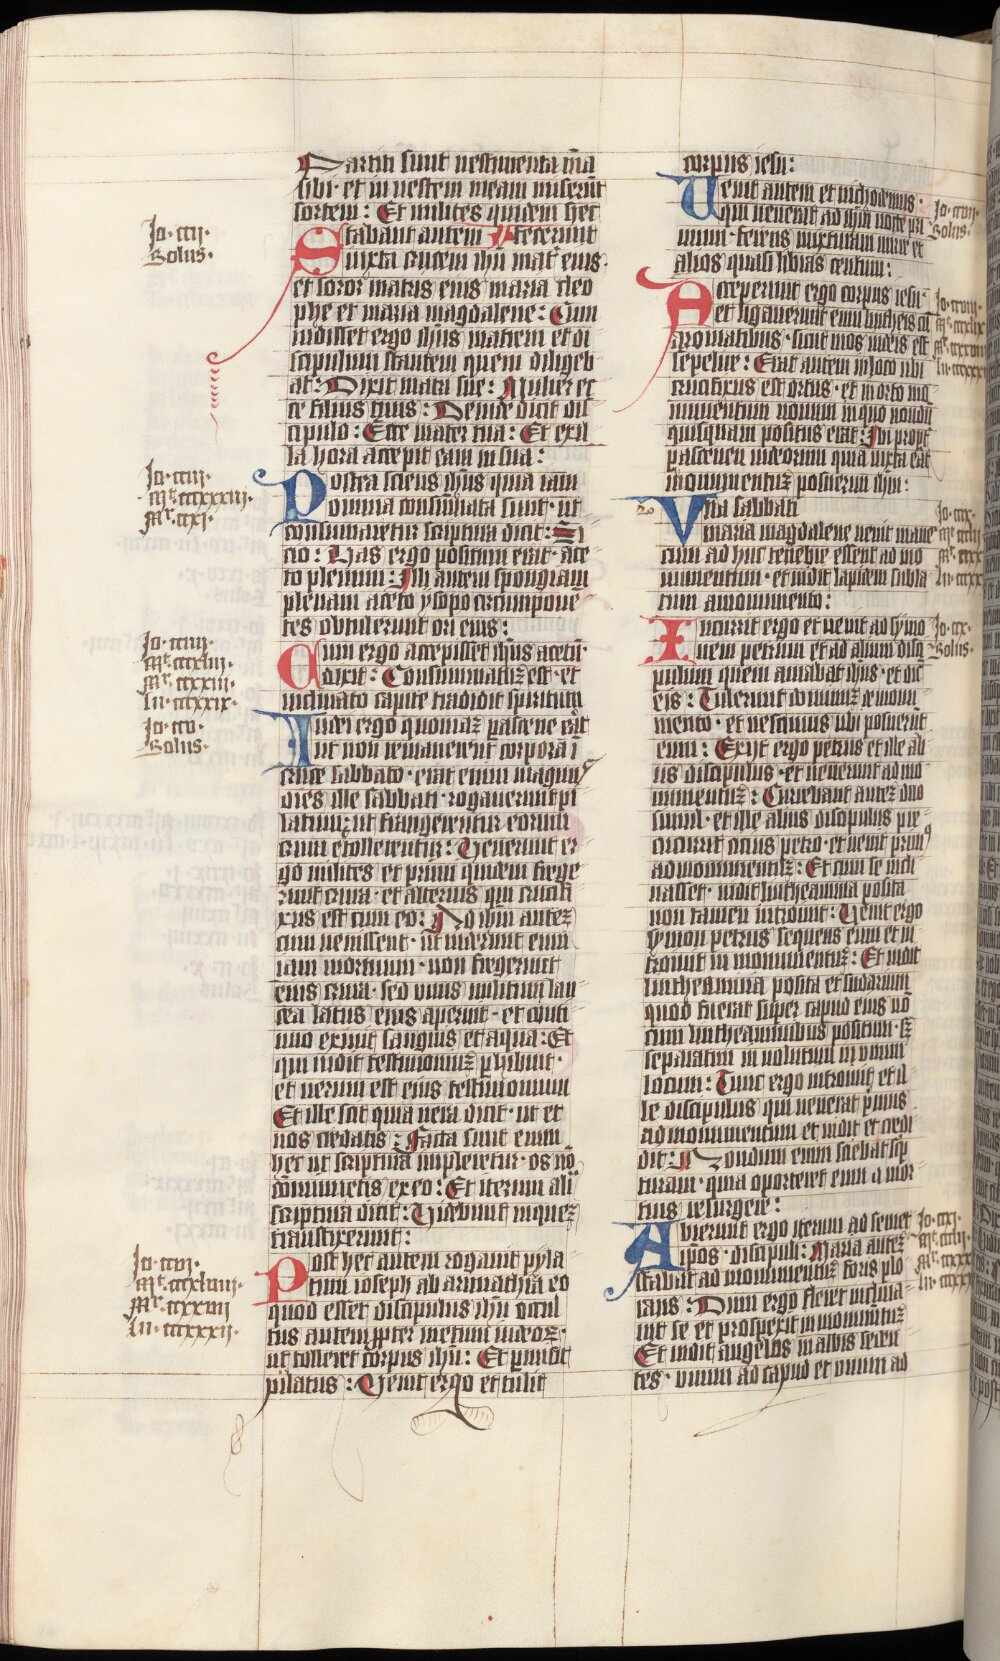 Partiti sunt uestimenta m̄a
sibi· et in uestem meam miserūt
sortem: Et milites quidem hec
Stabant autem fecerunt
iuxta crucem ihū mat̄ eius·
et soror matris eius maria cleo
phe et maria magdalene: Cum
uidisset ergo ihūs matrem et di
scipulum stantem quem diligeb
at: Dixit matri sue: Mulier ec
ce filius tuus: Deinde dicit dis
cipulo: Ecce mater tua: Et ex il
la hora accepit eam in sua:
Postea sciens ihūs quia iam
omnia consūmata sunt· ut
consumaretur scriptura dicit: Si
cio: Uas ergo positum erat· ace
to plenum: Illi autem spongiam
plenam aceto ysopo circumponē
tes obtulerunt ori eius:
Cum ergo accepisset ihūs acetū·
dixit: Consumatuʒ est· et
inclinato capite tradidit spiritum
Iudei ergo quoniaʒ pasceue erāt
ut non remanerent corpora ī
cruce sabbato· erat enim magnus
dies ille sabbati· rogauerunt pi
latum: ut frangerentur eorum
crura et tollerentur: Uenerunt er
go milites et primi quidem frege
runt crura· et alterius qui crucifi
xus est cum eo: Ad ihm̄ auteʒ
cum uenissent· ut uiderunt eum
iam mortuum· non fregerunt
eius crura· sed unus militum lan
cea latus eius aperuit· et conti
nuo exiuit sanguis et aqua: Et
qui uidit testimoniuʒ perhibuit·
et uerum est eius testimonium
Et ille scit quia uera dicit· ut et
uos credatis: Facta sunt enim
hec ut scriptura impleretur· os nō
cōminuetis ex eo: Et iterum ali
scriptura dicit: Uidebunt in queʒ
transfixerunt:
Post hec autem rogauit pyla
tum ioseph ab arimathia eo
quod esset discipulus ihū occul
tus autem ꝓpter metum iudeoꝝ·
ut tolleret corpus ihū: Et permisit
pilatus: Uenit ergo et tulit
Jo·ccij·
Solus·
Jo·cciij·
Mt·cccxxxiij·
Mr·ccxj·
Jo·cciiij·
Mt·cccxliij·
Mr·ccxxiij·
Lu·cccxxix·
Jo·ccv·
Solus·
Jo·ccvj·
Mt·cccxlviij·
Mr·ccxxvij
Lu·cccxxxij·
corpus iesu:
Uenit autem et nichodemus·
qui uenerat ad ihm̄ nocte pri
mum· ferens mixturam mirre et
aloes quasi libras centum:
Acceperunt ergo corpus iesu·
et ligauerunt eum lintheis cū
aromatibus· sicut mos iudeis est
sepelire: Erat autem in loco ubi
crucifixus est ortus· et in orto mo
numentum nouum in quo nondū
quisquam positus erat: Ibi propt̄
pasceuen iudeorum quia iuxta erat
monumentuʒ posuerunt ihm̄:
Una sabbati
maria magdalene uenit mane
cum adhuc tenebre essent ad mo
numentum· et uidit lapidem subla
tum a monumento:
Incurrit ergo et uenit ad symo
nem petrum et ad alium disci
pulum quem amabat ihūs· et dic̄
eis: Tulerunt dominuʒ de monu
mento· et nescimus ubi posuerūt
eum: Exijt ergo petrus et ille ali
us discipulus· et uenerunt ad mo
numentuʒ: Currebant auteʒ duo
simul· et ille alius discipulus pre
cucurrit cicius petro· et uenit primus
ad monumentuʒ: Et cum se incli
nasset· uidit lintheamina posita
non tamen introiuit: Uenit ergo
symon petrus sequens eum et in
troiuit in monumentuʒ: Et uidit
lintheamina posita et sudarium
quod fuerat super capud eius nō
cum lintheaminibus positum· sʒ
separatim in uolutum in unum
locum: Tunc ergo introiuit et il
le discipulus qui uenerat primus
ad monumentum et uidit et credi
dit: Nondum enim sciebat scrip
turam· quia oporteret eum a mor
tuis resurgere:
Abierunt ergo iterum ad semet
ipsos· discipuli: Maria auteʒ
stabat ad monumentuʒ foris plo
rans: Dum ergo fleret inclina
uit se et prospexit in monumētuʒ
Et uidit angelos in albis seden
tes· unum ad capud et unum ad
Solus·
Jo·ccx·
Solus·
Jo·ccxj·